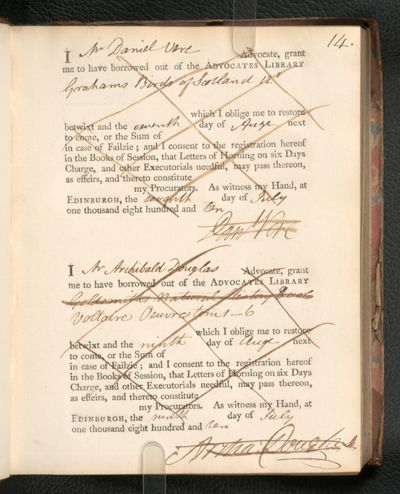 14.
I Mr Daniel Vere Advocate, grant
me to have borrowed out of the ADVOCATES LIBRARY
Grahams Birds of Scotland 12o
which I oblige me to restore
betwixt and the seventh day of Augt next
to come, or the Sum of
in case of Failzie; and I consent to the registration hereof
in the Books of Session, that Letters of Horning on six Days
Charge, and other Executorials needful, may pass thereon,
as effeirs, and thereto constitute
my Procurators. As witness my Hand, at
EDINBURGH, the seventh day of July
one thousand eight hundred and ten
Danl Vere
I Mr Archibald Douglas Advocate, grant
me to have borrowed out of the ADVOCATES LIBRARY
Goldsmiths Natural History
Voltaire Oeuvres toms 1–6
which I oblige me to restore
betwixt and the ninth day of Augt next
to come, or the Sum of
in case of Failzie; and I consent to the registration hereof
in the Books of Session, that Letters of Horning on six Days
Charge, and other Executorials needful, may pass thereon,
as effeirs, and thereto constitute
my Procurators. As witness my Hand, at
EDINBURGH, the ninth day of July
one thousand eight hundred and ten
Douglas